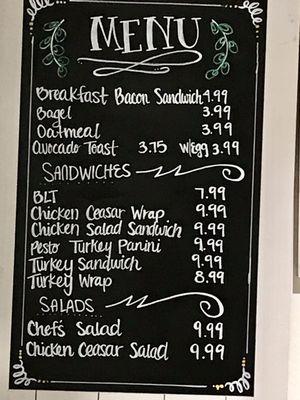 MENU
Breakfast Bacon Sandwich 4.99
Bagel 3.99
Oatmeal 3.99
Avocado Toast 3.75 w/Egg 3.99
SANDWICHES
BLT 7.99
Chicken Ceasar Wrap 9.99
Chicken Salad Sandwich 9.99
Pesto Turkey Panini 9.99
Turkey Sandwich 9.99
Turkey Wrap 8.99
SALADS
Chefs Salad 9.99
Chicken Ceasar Salad 9.99